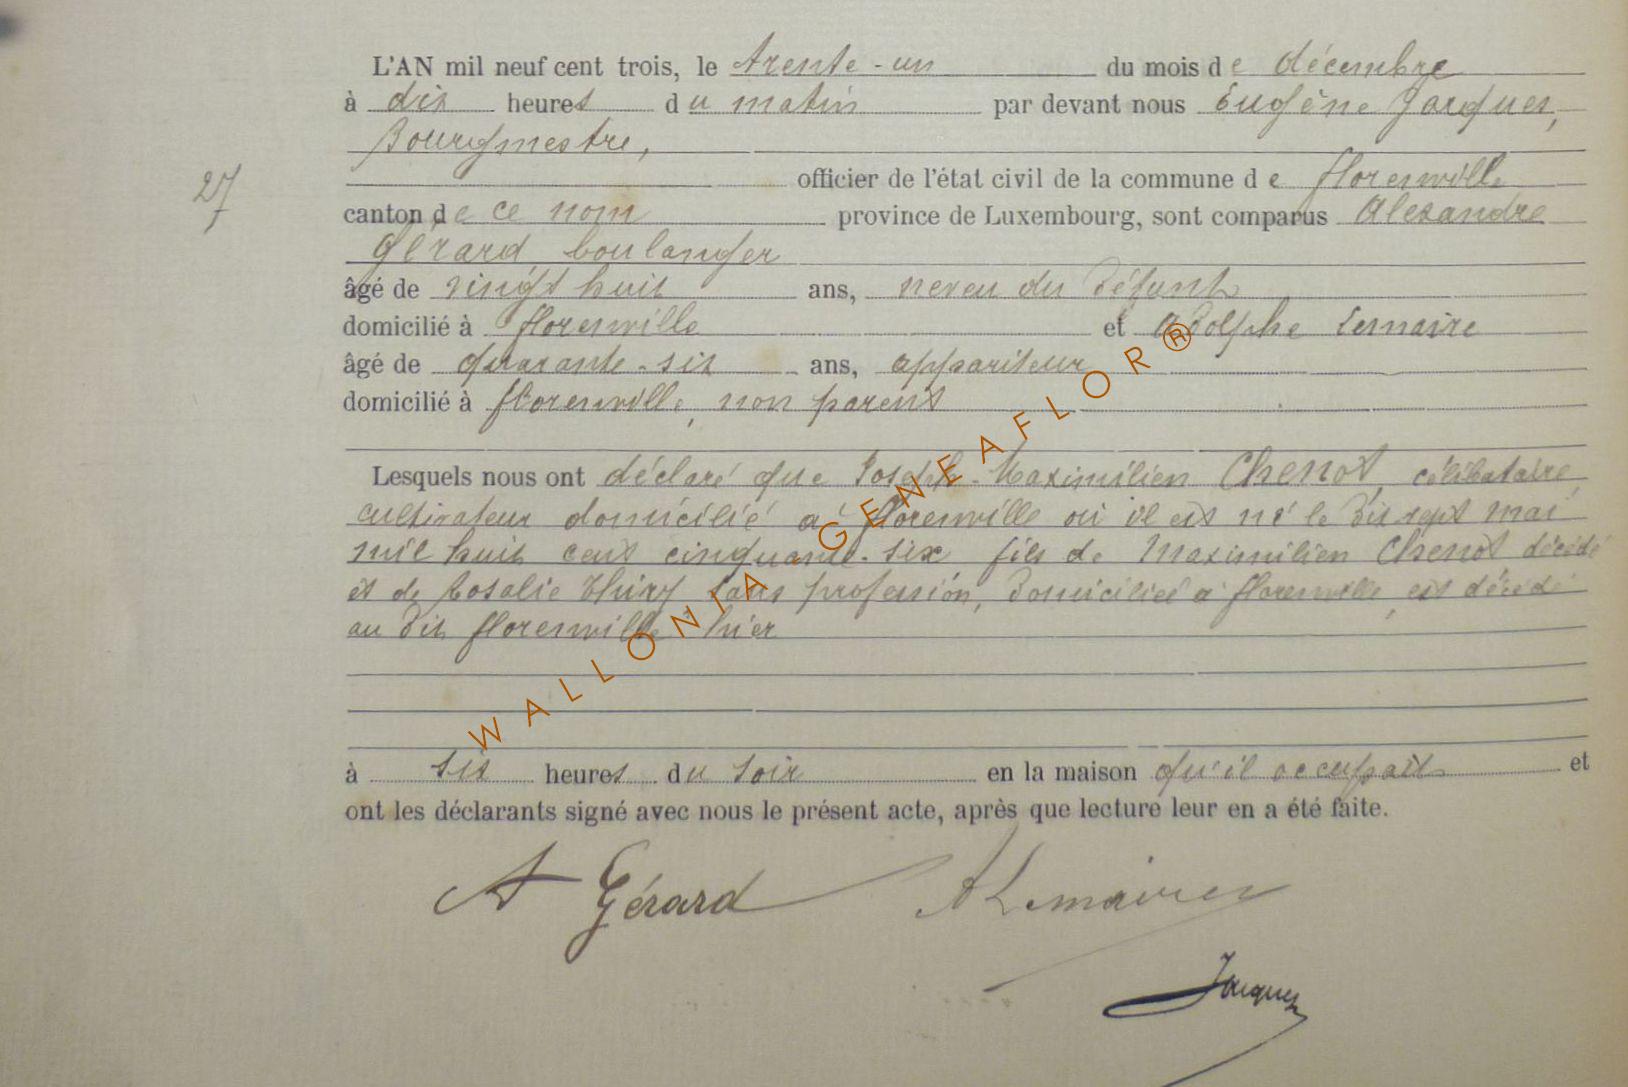 L'AN mil neuf cent trois, le trente-un du mois de décembre
à dix heures du matin par devant nous Eugène Jacques,
Bourgmestre,
officier de l'état civil de la commune de florenville
27
canton de ce nom province de Luxembourg, sont comparus Alexandre
Gérard boulanger
âgé de vingt huit ans, neveu du défunt
domicilié à florenville et Adolphe Lemaire
âgé de quarante-six ans, appariteur
domicilié à florenville, non parent
Lesquels nous ont déclaré que Joseph-Maximilien Chenot, célibataire,
cultivateur domicilié à florenville où il est né le dix sept mai
mil huit cent cinquante-six fils de Maximilien Chenot décédé
et de Rosalie Thiry sans profession, domiciliée à florenville, est décédé
au dit florenville hier
à six heures du soir en la maison qu'il occupait et
ont les déclarants signé avec nous le présent acte, après que lecture leur en a été faite.
A Gérard A Lemaire
Jacques
WALLONIA GENEAFLOR®